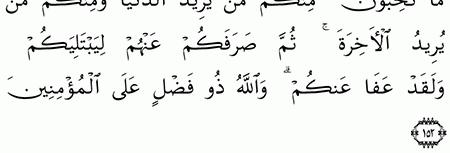 مَا تُحِبُّونَ ۚ مِنكُم مَّن يُرِيدُ الدُّنْيَا وَمِنكُم مَّن
يُرِيدُ الْأَخِرَةَ ۚ ثُمَّ صَرَفَكُمْ عَنْهُمْ لِيَبْتَلِيَكُمْ
وَلَقَدْ عَفَا عَنكُمْ ۗ وَاللَّهُ ذُو فَضْلٍ عَلَى الْمُؤْمِنِينَ
﴿١٥٢﴾